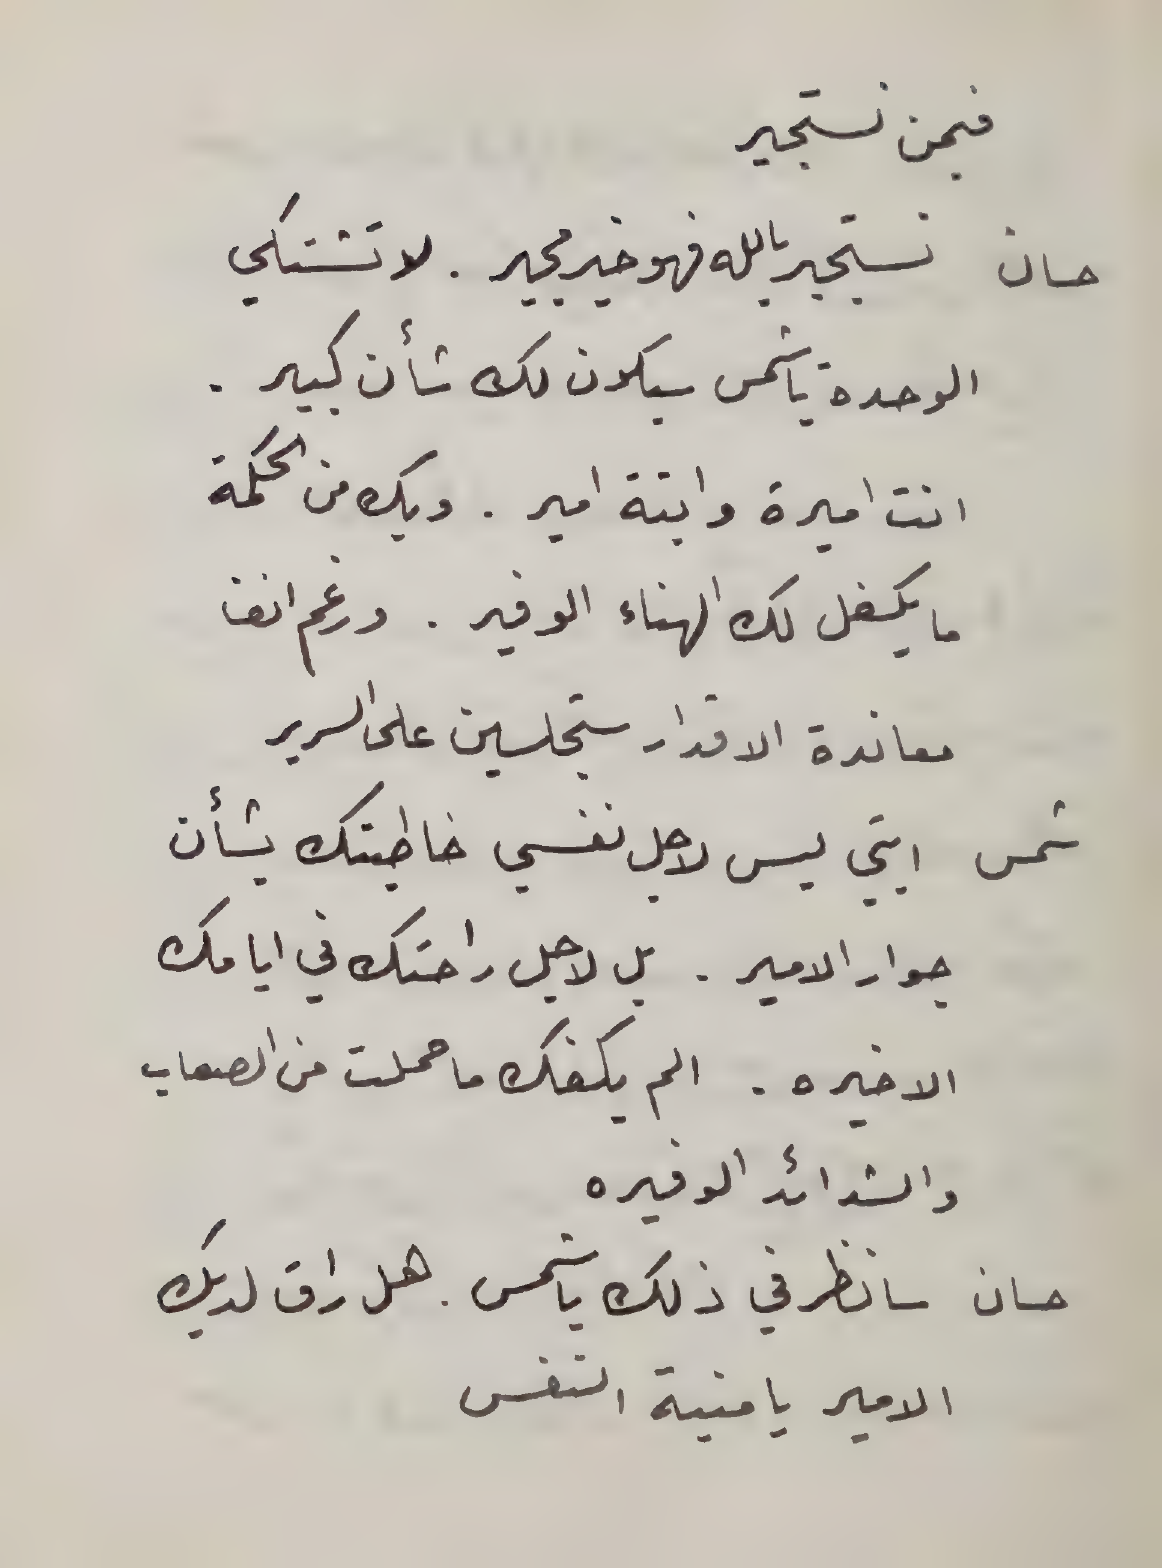 فبمن نستجير
حسان نستجير بالله فهو خير مجير . لا تشتكي
الوحدة يا شمس سيكون لك شأن كبير .
انت اميرة وابنة امير . وبك من الحكمة
ما يكفل لك الهناء الوفير . ورغم انف
معاندة الاقدار ستجلسين على السرير
شمس ابتي ليس لاجل نفسي خاطبتك بشأن
جوار الامير . بل لاجل راحتك في ايامك
الاخيره . الم يكفك ما حملت من الصعاب
والشدائد الوفيره
حسان سانظر في ذلك يا شمس . هل راق لديك
الامير يا منية النفس